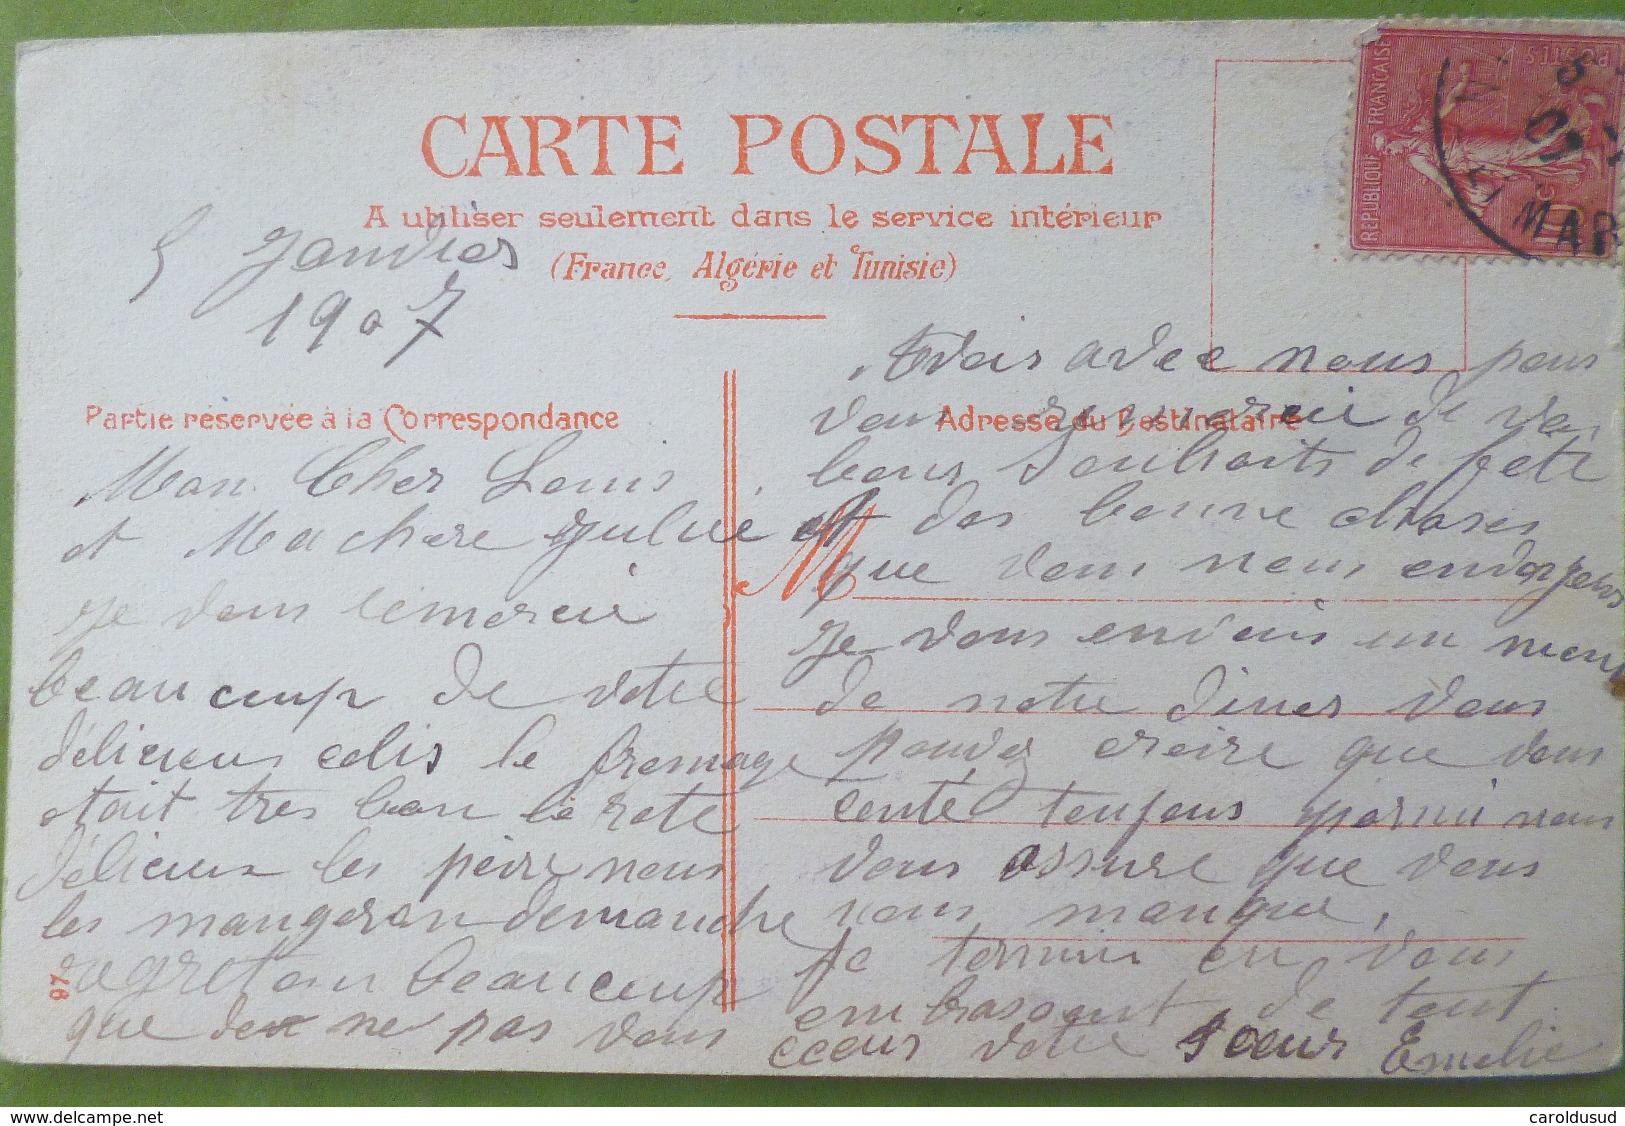 CARTE POSTALE
A utiliser seulement dans le service intérieur
(France, Algérie et Tunisie)
REPUBLIQUE FRANÇAISE
POSTES
10c
MAR
07
5 Janvier
1907
Partie réservée à la Correspondance
Adresse du Destinataire
M
Mon Cher Louis
et Machere Julie
Je vous remercie
beaucoup de votre
délicieux colis le fromage
etait tres bon le rote
délicieux les poire nous
les mangeron demanche
regretan beaucoup
que de ne pas vous
Avoir avec nous pour
vous remercie de vos
bons souhaits de fete
et des bonne choses
que vous nous
Je vous envois un menu
de notre diner vous
pouvez croire que vous
cente toujours parmi nous
vous assure que vous
nous manque,
Je termine en vous
embrasant de tout
coeur votre soeur Emelie
97
delcampe.net
caroldusud